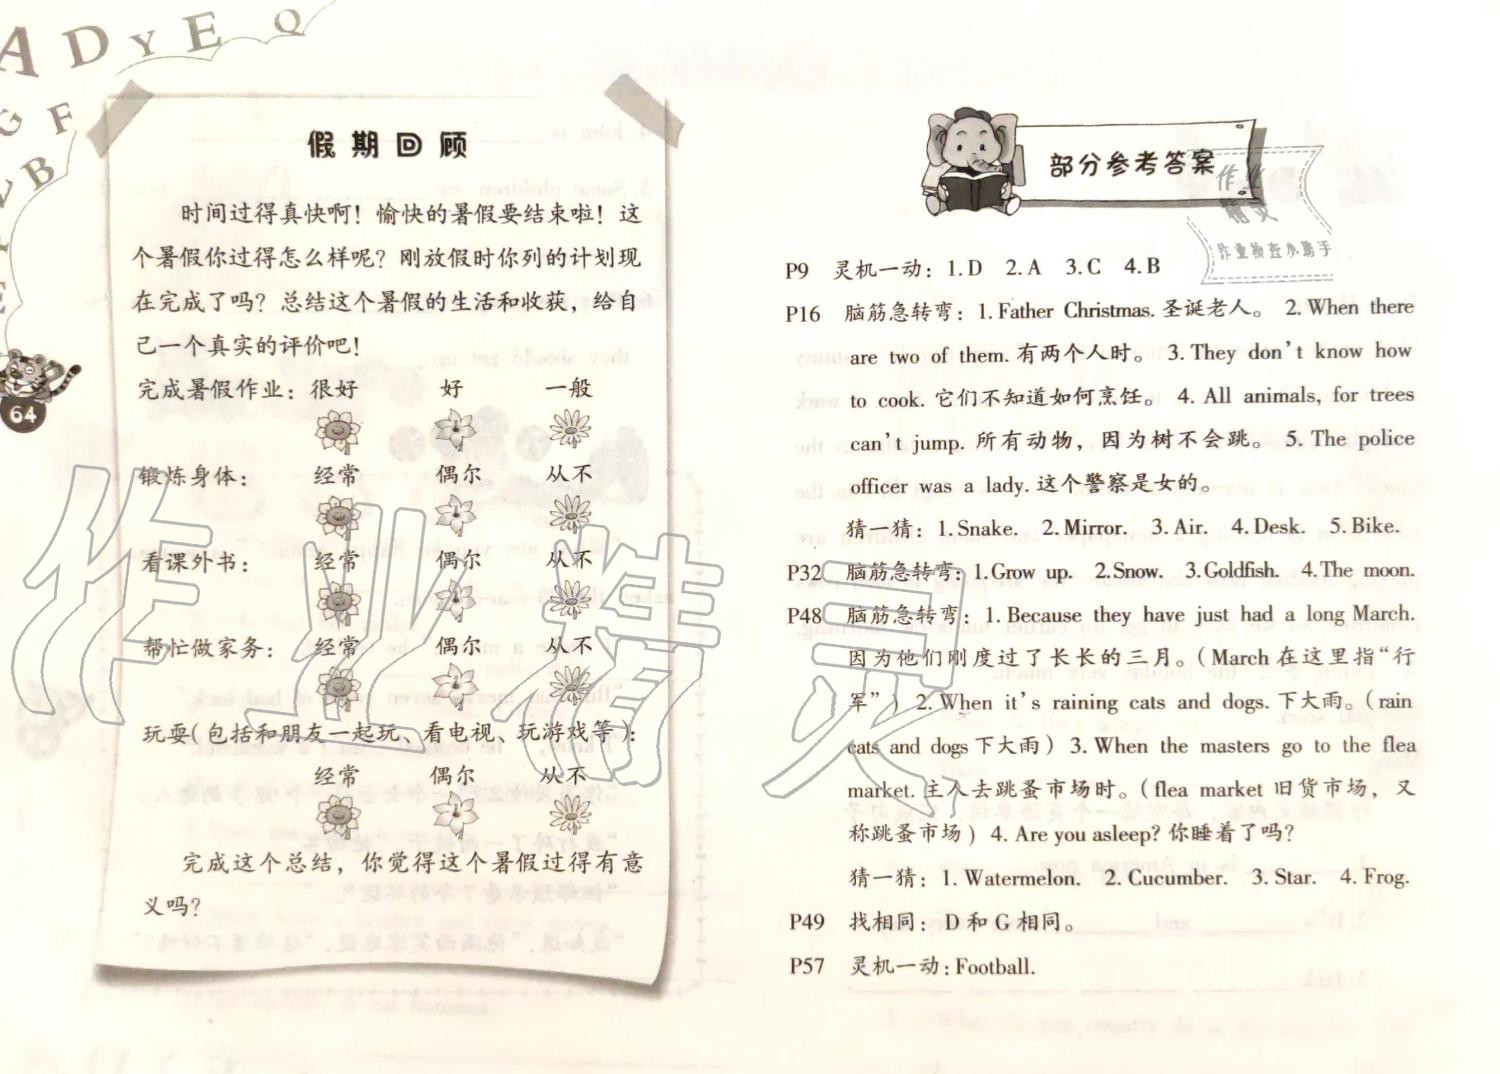 A D Y E Q
G F
B
E
64
假期回顾
时间过得真快啊！愉快的暑假要结束啦！这
个暑假你过得怎么样呢？刚放假时你列的计划现
在完成了吗？总结这个暑假的生活和收获，给自
己一个真实的评价吧！
完成暑假作业：很好 好 一般
锻炼身体： 经常 偶尔 从不
看课外书： 经常 偶尔 从不
帮忙做家务： 经常 偶尔 从不
玩耍（包括和朋友一起玩、看电视、玩游戏等）：
经常 偶尔 从不
完成这个总结，你觉得这个暑假过得有意
义吗？
部分参考答案
作业
精灵
作业检查小助手
P9 灵机一动：1.D 2.A 3.C 4.B
P16 脑筋急转弯：1.Father Christmas.圣诞老人。 2.When there
are two of them.有两个人时。 3.They don't know how
to cook.它们不知道如何烹饪。 4.All animals, for trees
can't jump.所有动物，因为树不会跳。 5.The police
officer was a lady.这个警察是女的。
猜一猜：1.Snake. 2.Mirror. 3.Air. 4.Desk. 5.Bike.
P32 脑筋急转弯：1.Grow up. 2.Snow. 3.Goldfish. 4.The moon.
P48 脑筋急转弯：1.Because they have just had a long March.
因为他们刚度过了长长的三月。（March在这里指“行
军”） 2.When it's raining cats and dogs.下大雨。（rain
cats and dogs下大雨） 3.When the masters go to the flea
market.主人去跳蚤市场时。（flea market旧货市场，又
称跳蚤市场） 4.Are you asleep?你睡着了吗？
猜一猜：1.Watermelon. 2.Cucumber. 3.Star. 4.Frog.
P49 找相同：D和G相同。
P57 灵机一动：Football.
作业精灵